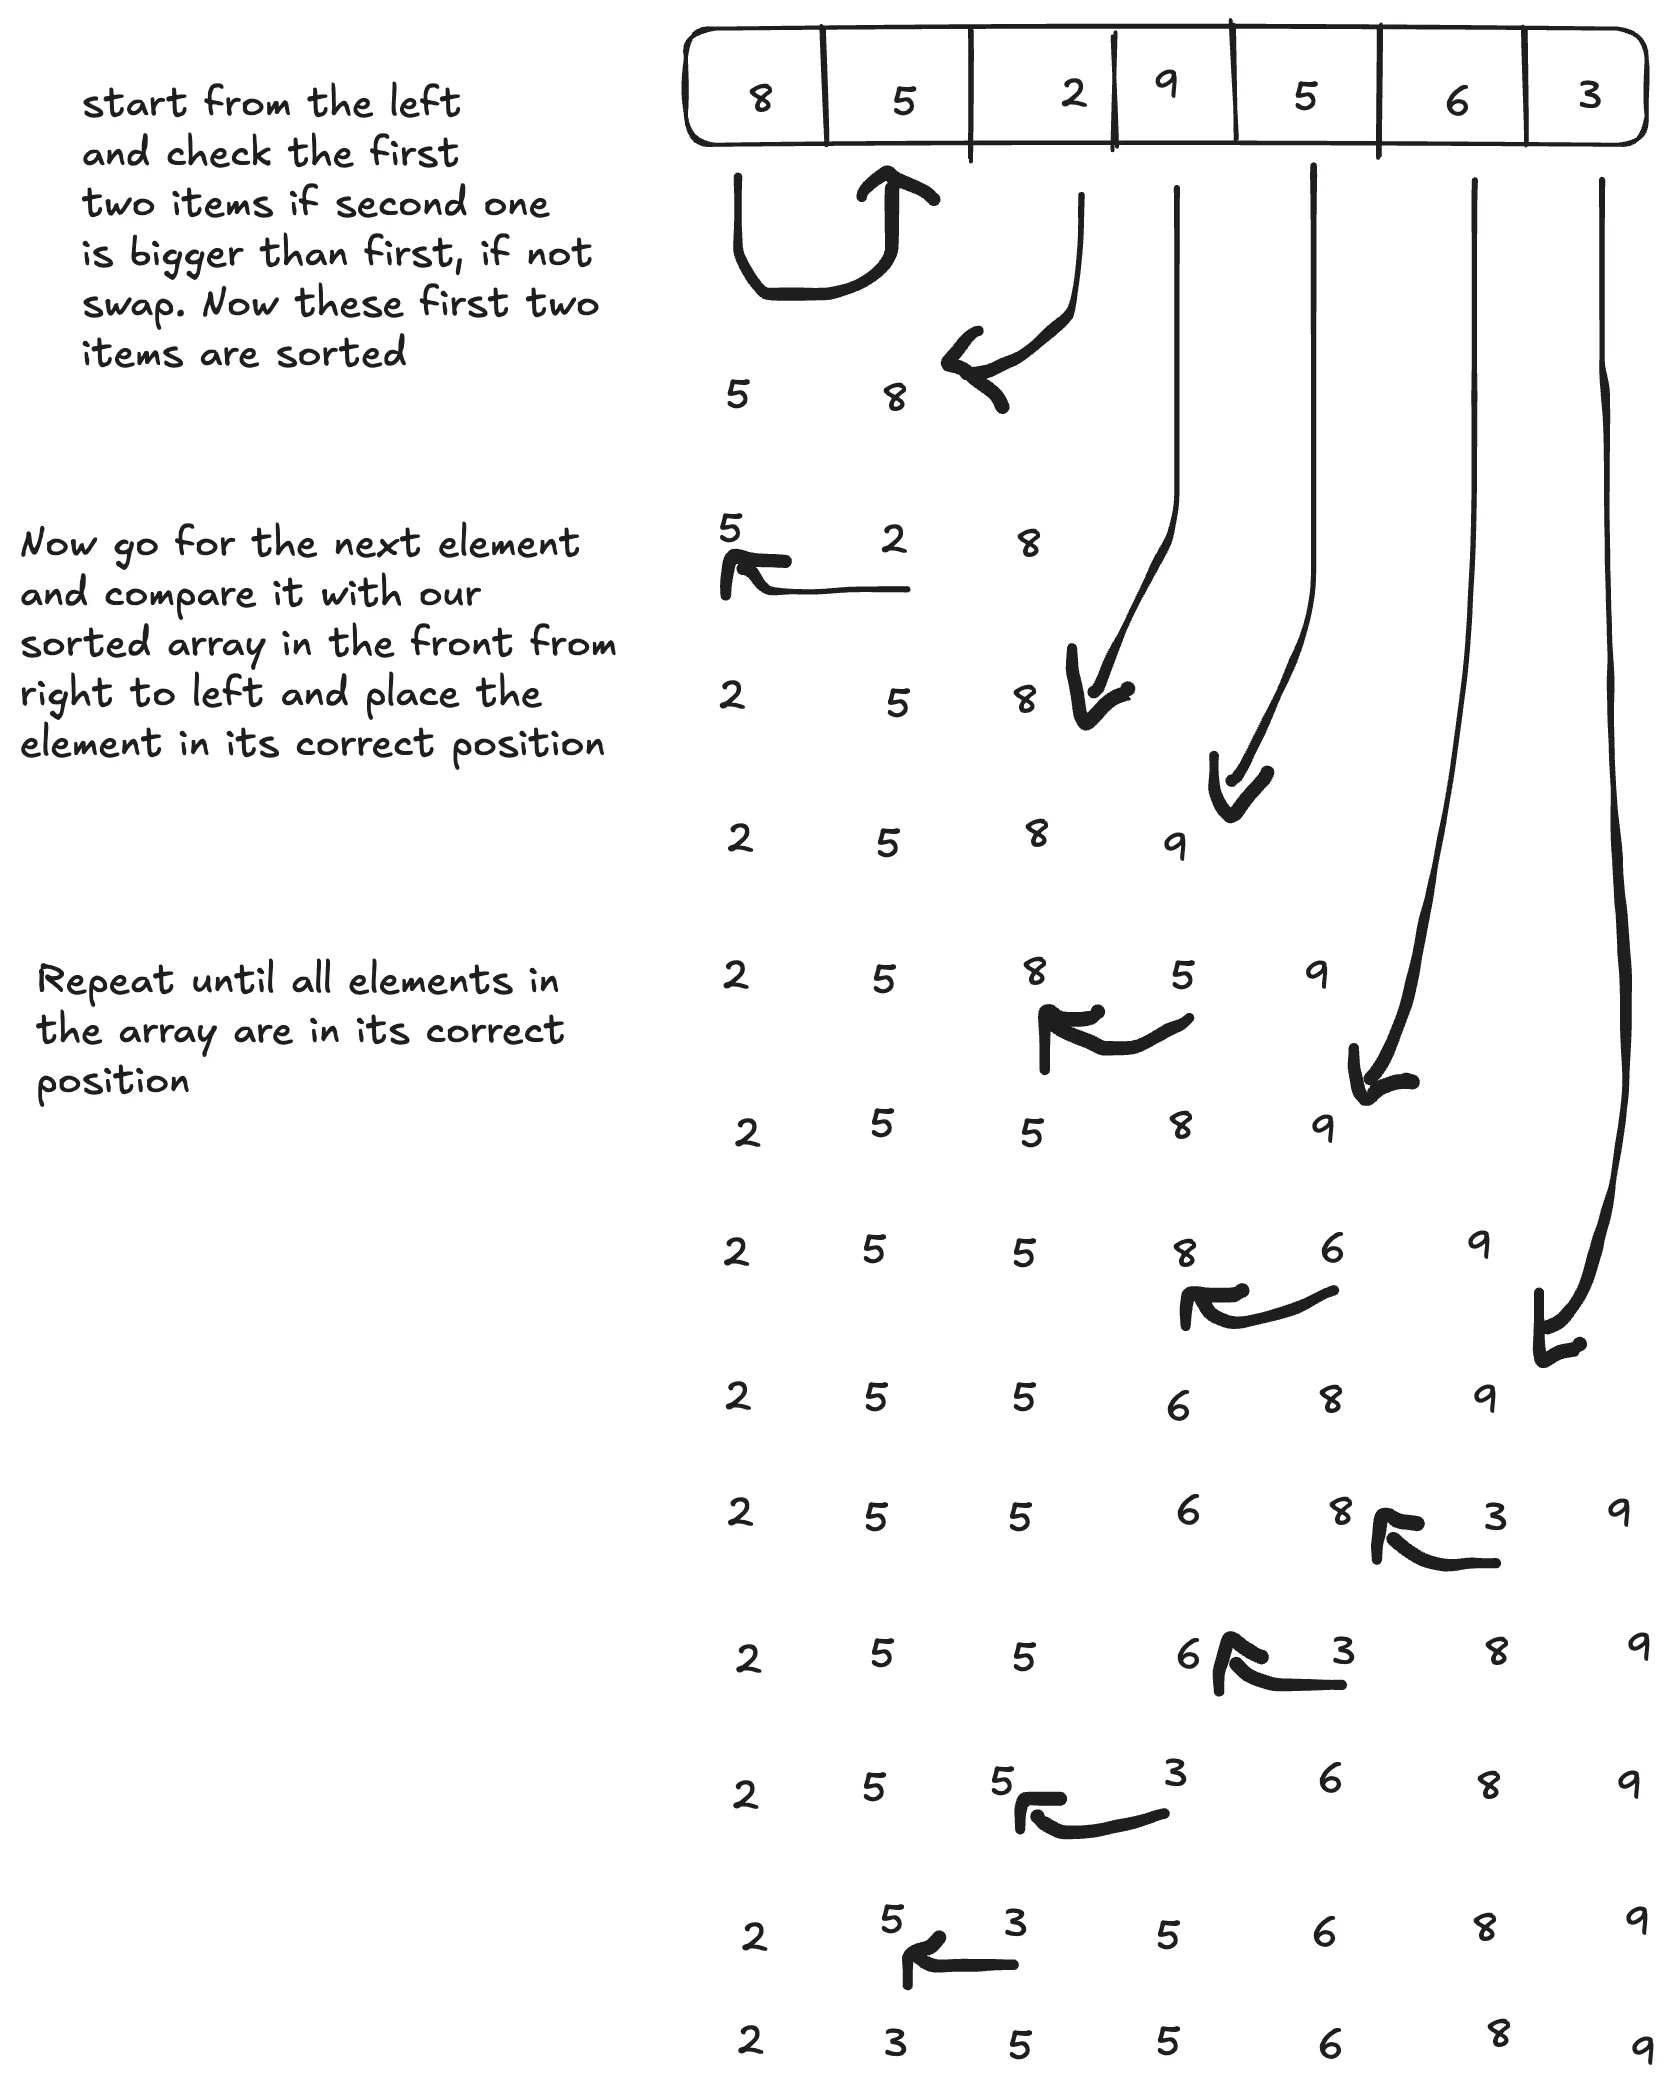 8 5 2 9 5 6 3
start from the left
and check the first
two items if second one
is bigger than first, if not
swap. Now these first two
items are sorted
5 8
5 2 8
Now go for the next element
and compare it with our
sorted array in the front from
right to left and place the
element in its correct position
2 5 8
2 5 8 9
2 5 8 5 9
Repeat until all elements in
the array are in its correct
position
2 5 5 8 9
2 5 5 8 6 9
2 5 5 6 8 9
2 5 5 6 8 3 9
2 5 5 6 3 8 9
2 5 5 3 6 8 9
2 5 3 5 6 8 9
2 3 5 5 6 8 9